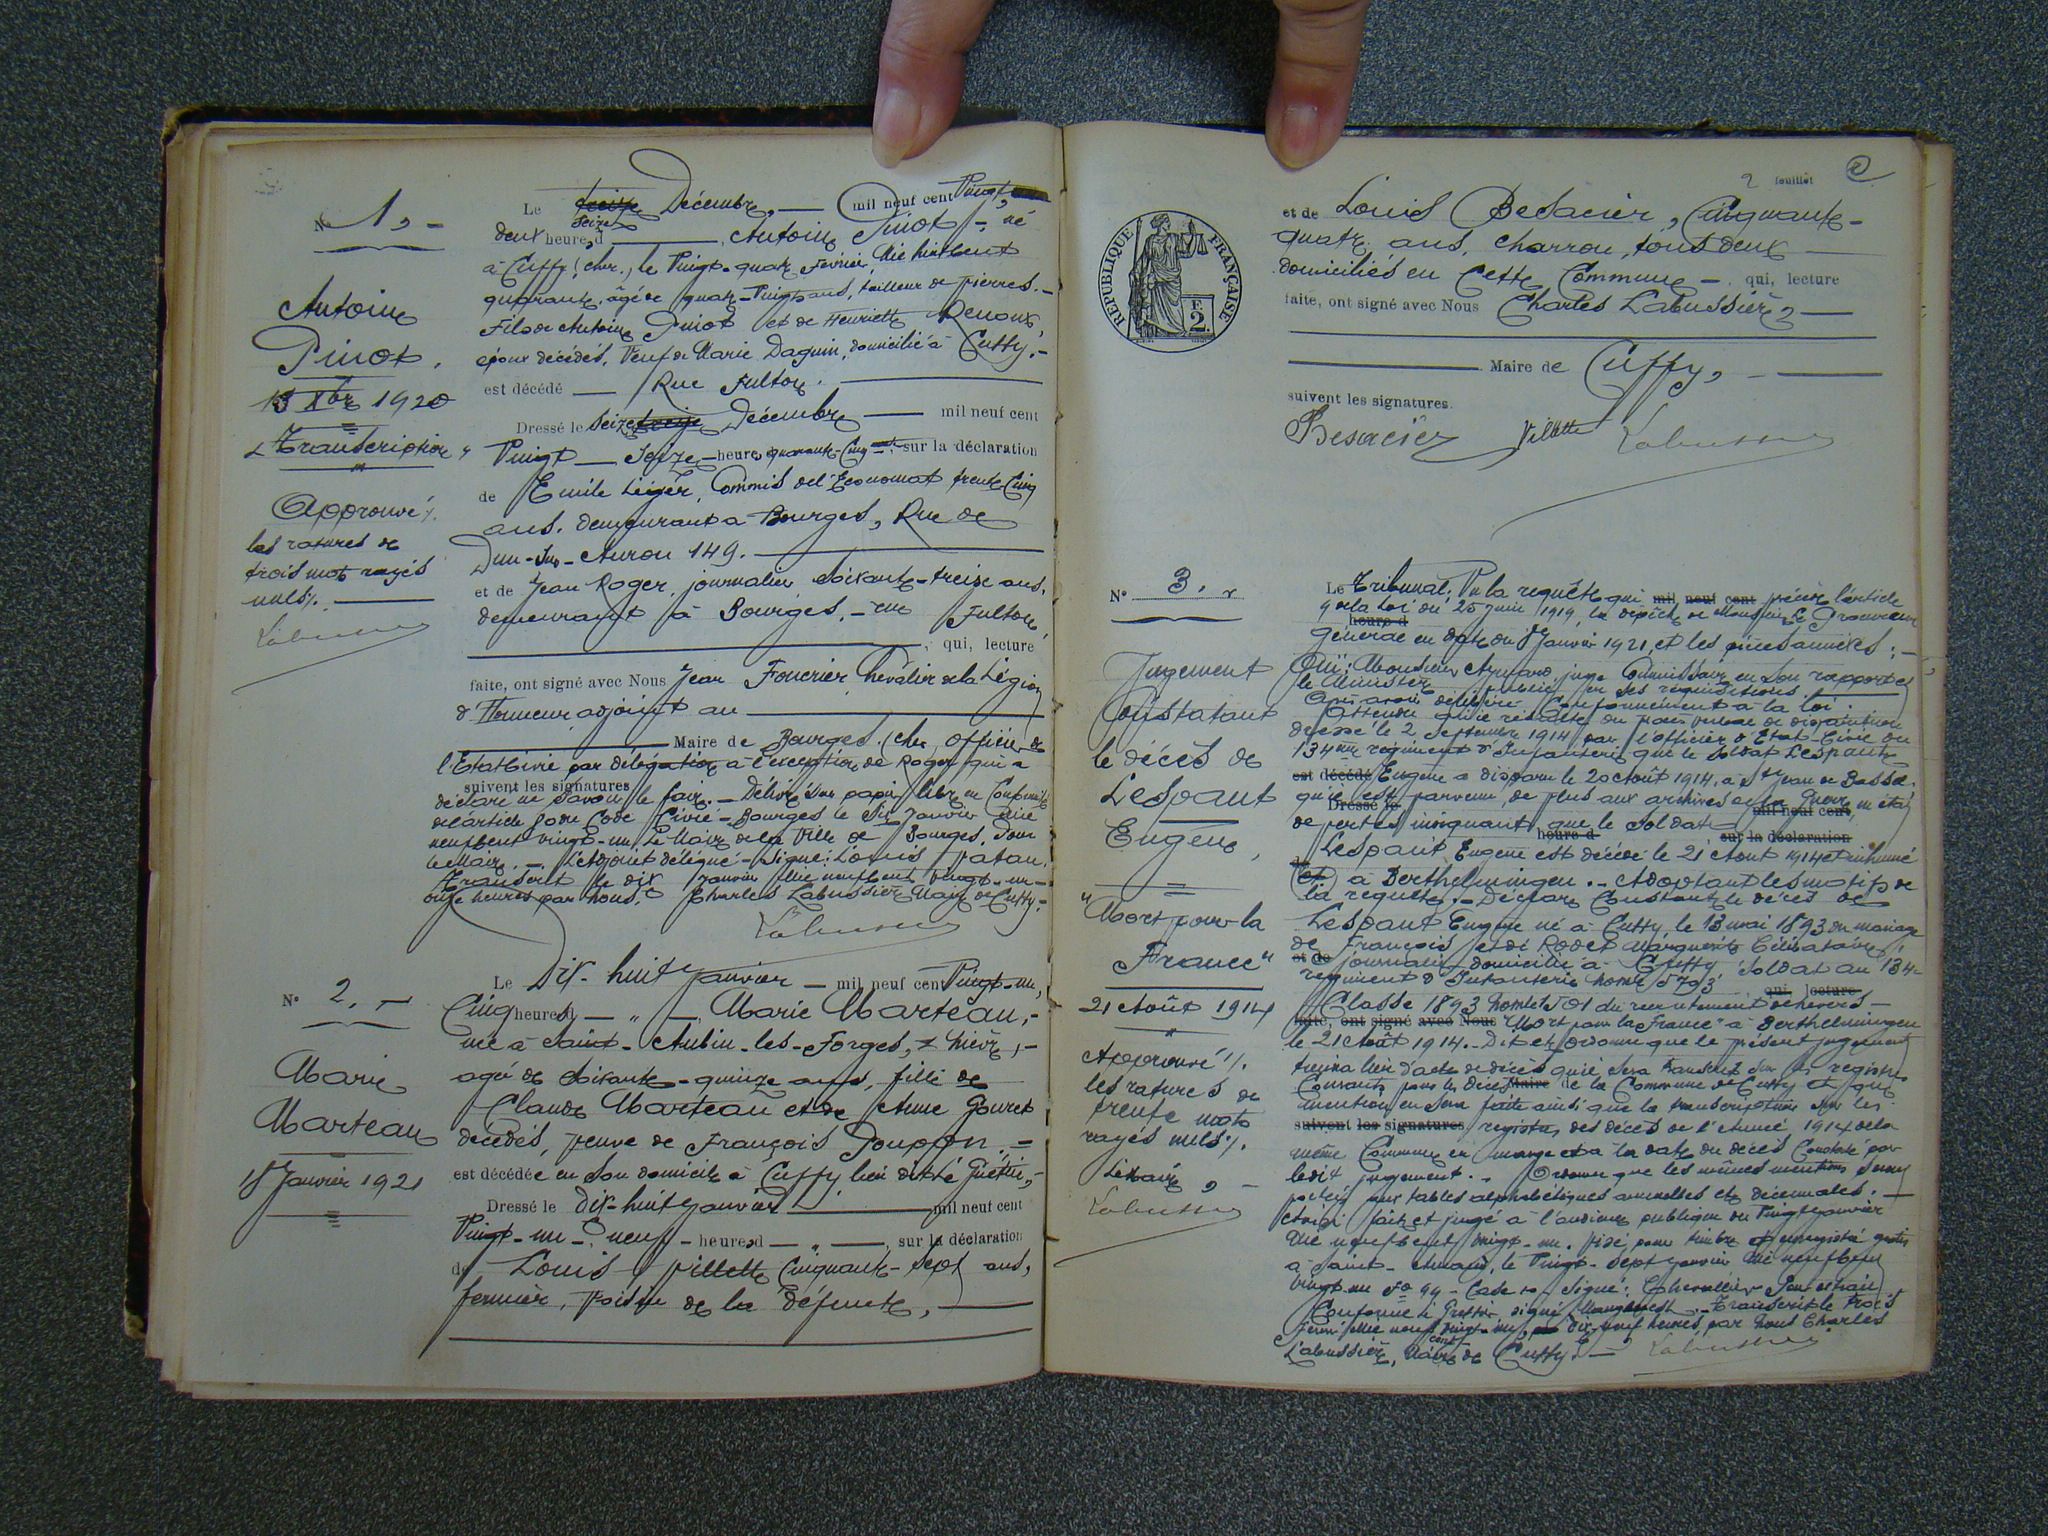 N° 1, -
Antoine
Pinot.
13 Xbre 1920
"Transcription"
Approuvé %
les ratures de
trois mots rayés
nuls %.
Labussière
Le treize Décembre, — mil neuf cent Vingt,
seize
deux heures, d — , Antoine Pinot, - né
à Cuffy (cher.) le Vingt-quatre Février, Mil huit cent
quarante, âgé de quatre-Vingts ans, tailleur de pierres. -
Fils de Antoine Pinot et de Henriette Renoux,
époux décédés, Veuf de Marie Daguin, domicilié à Cuffy. -
est décédé — Rue Fulton.
Dressé le seize treize Décembre — mil neuf cent
Vingt — Seize - heure quarante-Cinq mtes sur la déclaration
de Emile Léger, Commis de l'Economat trente Cinq
ans, demeurant à Bourges, Rue de
Dun-sur-Auron 149.
et de Jean Roger, journalier soixante-treize ans,
demeurant à Bourges, - rue Fulton,
, qui, lecture
faite, ont signé avec Nous Jean Foucrier, Chevalier de la Légion
d'Honneur adjoint au
Maire de Bourges (cher, officier de
l'Etat Civil par délégation à l'exception de Roger qui a
suivent les signatures
déclaré ne savoir le faire. - Délivré sur papier libre en Conformité
de l'article 80 du Code Civil - Bourges le Six Janvier Mil
neuf cent vingt-un Le Maire de la Ville de Bourges, Pour
le Maire. - L'Adjoint délégué - Signé: Louis
Transcrit le dix Janvier Mil neuf cent vingt-un -
onze heures par Nous, Charles Labussière Maire de Cuffy. -
Labussière
N° 2. -
Marie
Marteau
18 Janvier 1921
Le Dix-huit Janvier — mil neuf cent Vingt-un,
Cinq heures, d — " — , Marie Marteau, -
née à Saint-Aubin-les-Forges, Nièvre, -
agée de Soixante-quinze ans, fille de
Claude Marteau et de Anne Gouret
décédés, veuve de François Pouppon, -
est décédée en son domicile à Cuffy, lieu dit Le Guétin, -
Dressé le dix-huit Janvier — mil neuf cent
Vingt-un - neuf - heures, d — " — , sur la déclaration
de Louis Villette Cinquante-Sept ans,
fermier, Voisin de la défunte,
2 feuillet 2
RÉPUBLIQUE FRANÇAISE
F.
2.
et de Louis Besacier, Cinquante-
quatre ans, charron, tous deux
domiciliés en Cette Commune - qui, lecture
faite, ont signé avec Nous Charles Labussière,
Maire de Cuffy, -
suivent les signatures.
Besacier Villette Labussière
N° 3. "
Jugement
Constatant
le décès de
Lespaut
Eugène,
"Mort pour la
France"
21 Août 1914
Approuvé %.
les ratures de
trente mots
rayés nuls %.
Le Maire, -
Labussière
Le Tribunal; Vu la requête qui mil neuf cent précède l'article
9 de la Loi du 25 Juin 1919, la dépêche de Monsieur Le Procureur
heure d
Général en date du 8 Janvier 1921, et les pièces annexées; -
Ouï: Monsieur Aynard, juge Commissaire en son rapport et
le Ministère public en ses réquisitions. -
Après avoir délibéré Conformément à la loi. -
Attendu qu'il résulte du procès verbal de disparition
dressé le 2 Septembre 1914 par l'officier d'Etat-Civil du
134me régiment d'Infanterie que le soldat Lespaut
est décédé Eugène a disparu le 20 Août 1914, à St Jean de Bassel
qu'il est parvenu, de plus aux archives de la Guerre un état
Dressé le mil neuf cent
de pertes indiquant que le soldat
heure d sur la déclaration
Lespaut Eugène est décédé le 21 Août 1914 et inhumé
de
à Berthelmingen. - Adoptant les motifs de
la requête. - Déclare Constant le décès de
Lespaut Eugène né à Cuffy le 13 mai 1893 du mariage
de François et de Rodet Marguerite Célibataire,
et de journalier domicilié à Cuffy Soldat au 134e
régiment d'Infanterie, Nome 5703
qui, lecture
Classe 1893 Nomele 501 du recrutement de Nevers -
faite, ont signé avec Nous "Mort pour la France" à Berthelmingen
le 21 Août 1914. - Dit et Ordonne que le présent jugement
tiendra lieu d'acte de décès qu'il sera transcrit sur les registres
Courants pour les décès Maire de la Commune de Cuffy et que
mention en sera faite ainsi que la transcription sur les
suivent les signatures registres des décès de l'année 1914 de la
même Commune en marge et à la date du décès Constaté par
ledit jugement. - Ordonne que les mêmes mentions seront
portées aux tables alphabétiques annuelles et décennales. -
Ainsi fait et jugé à l'audience publique du Vingt Janvier
Mil neuf cent vingt-un. Visé pour timbre et enregistré gratis
à Saint-Amand, le Vingt-sept Janvier Mil neuf cent
Vingt-un Fo 94 - Case 10 Signé: Chevallier Pour extrait
Conforme le Greffier signé - Transcrit le trois
Février Mil neuf cent Vingt-un, dix-neuf heures par Nous Charles
Labussière, Maire de Cuffy. - Labussière